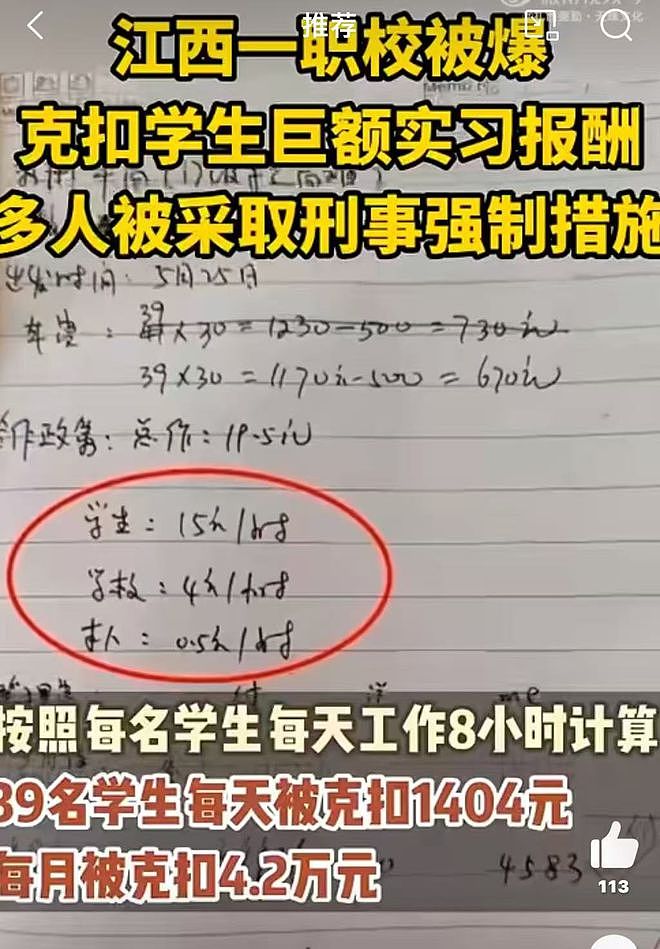 推荐
江西一职校被爆
克扣学生巨额实习报酬
多人被采取刑事强制措施
出发时间：5月25日
车费：
39×30=1230-500=730元
39×30=1170元-500=670元
作政策：总价：19.5元
学生：15元/时
学校：4元/时
本人：0.5元/时
按照每名学生每天工作8小时计算
39名学生每天被克扣1404元
每月被克扣4.2万元
4583
113